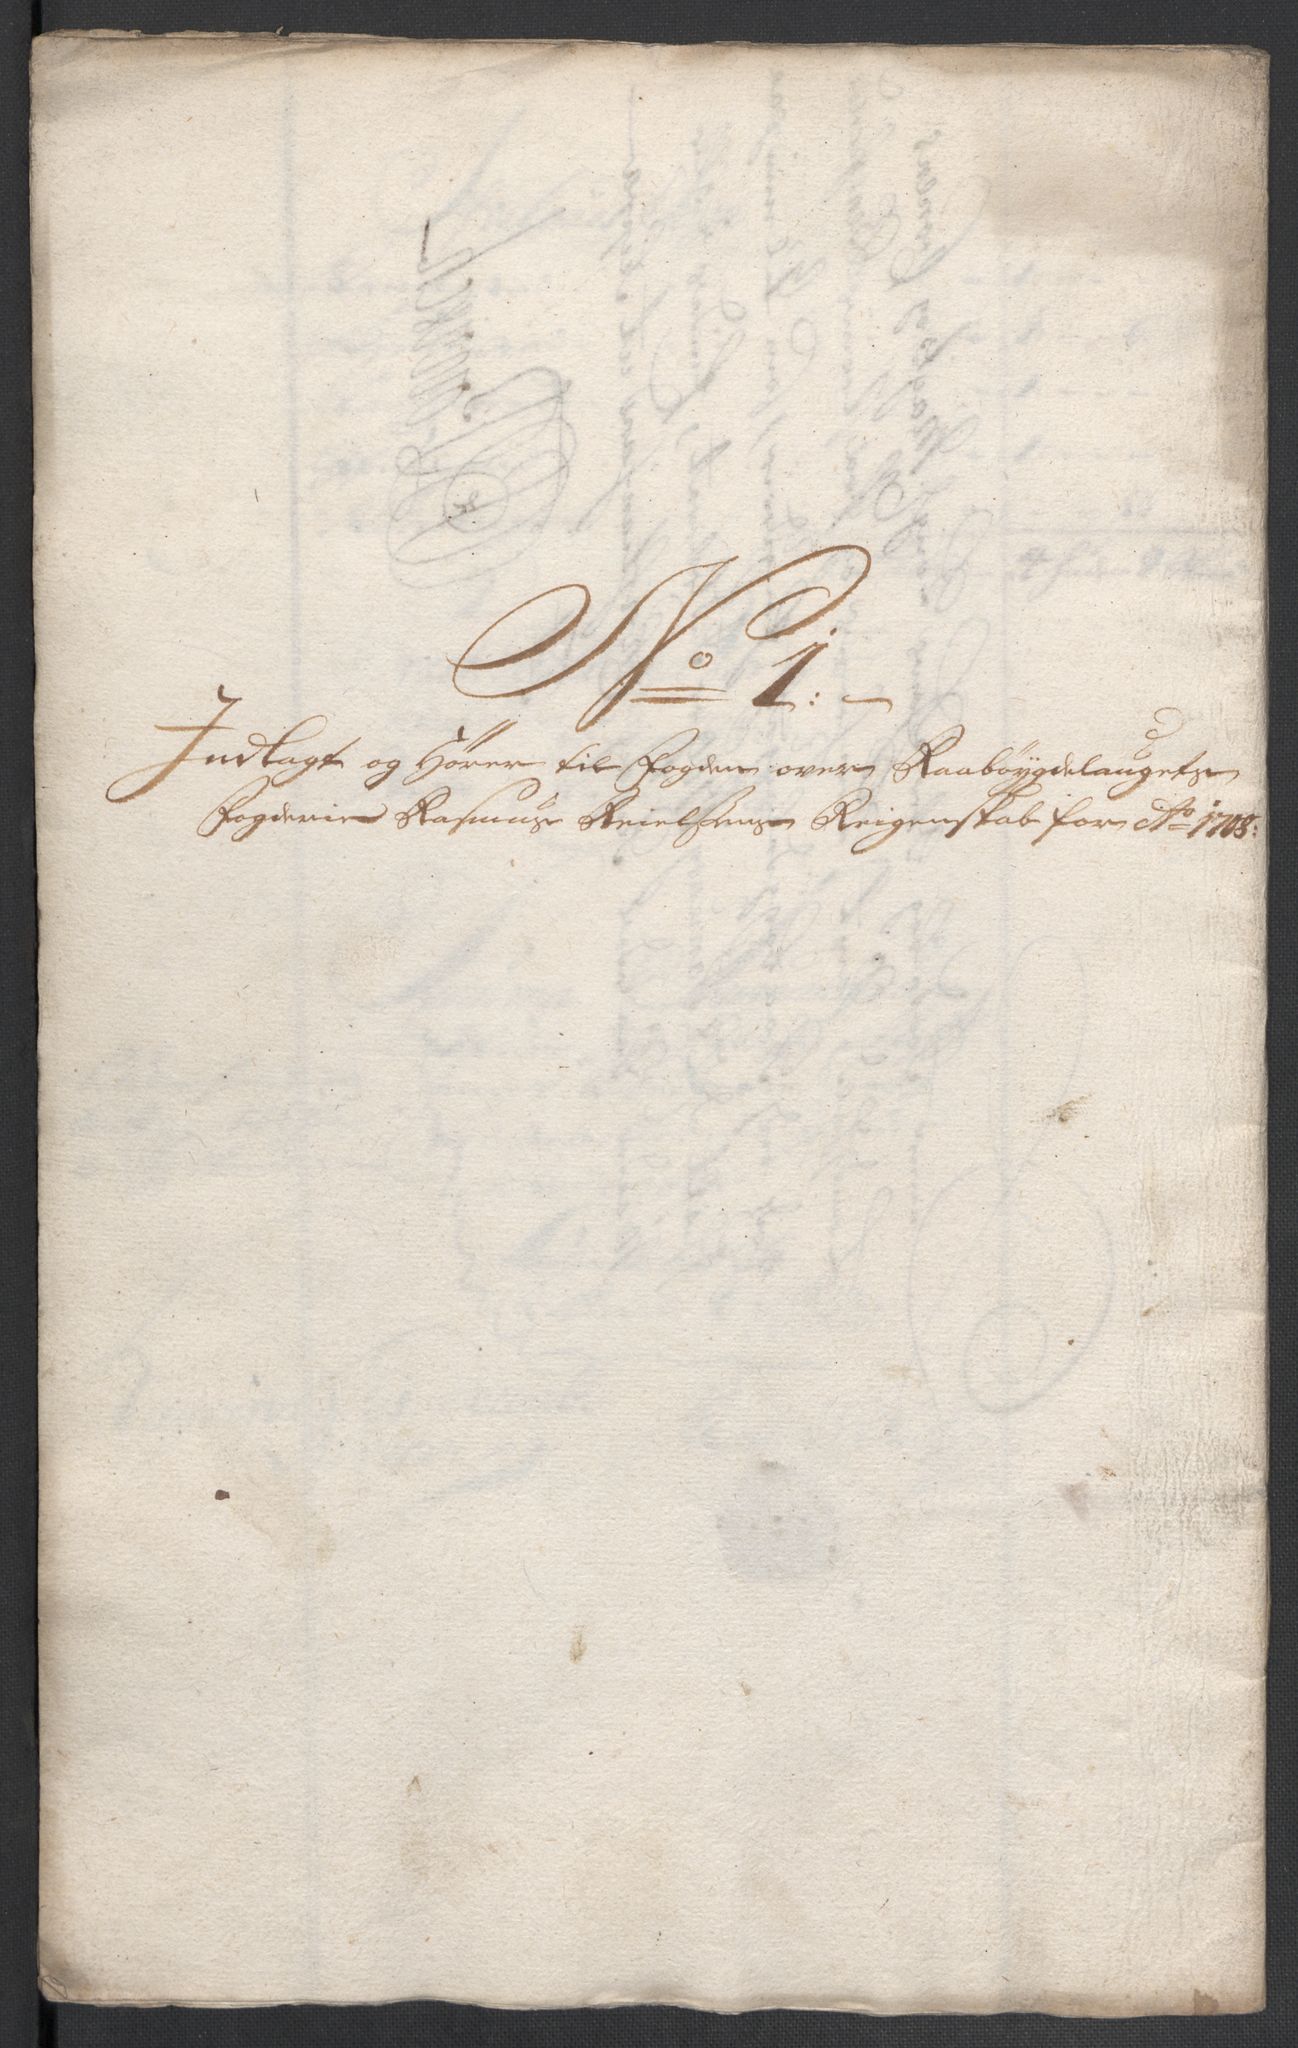 No 1:
Indlagt og Hører til Fogden over Raabøygdelaugets
Fogderie Rasmus Reielsens Reigenskab for Ao 1708: